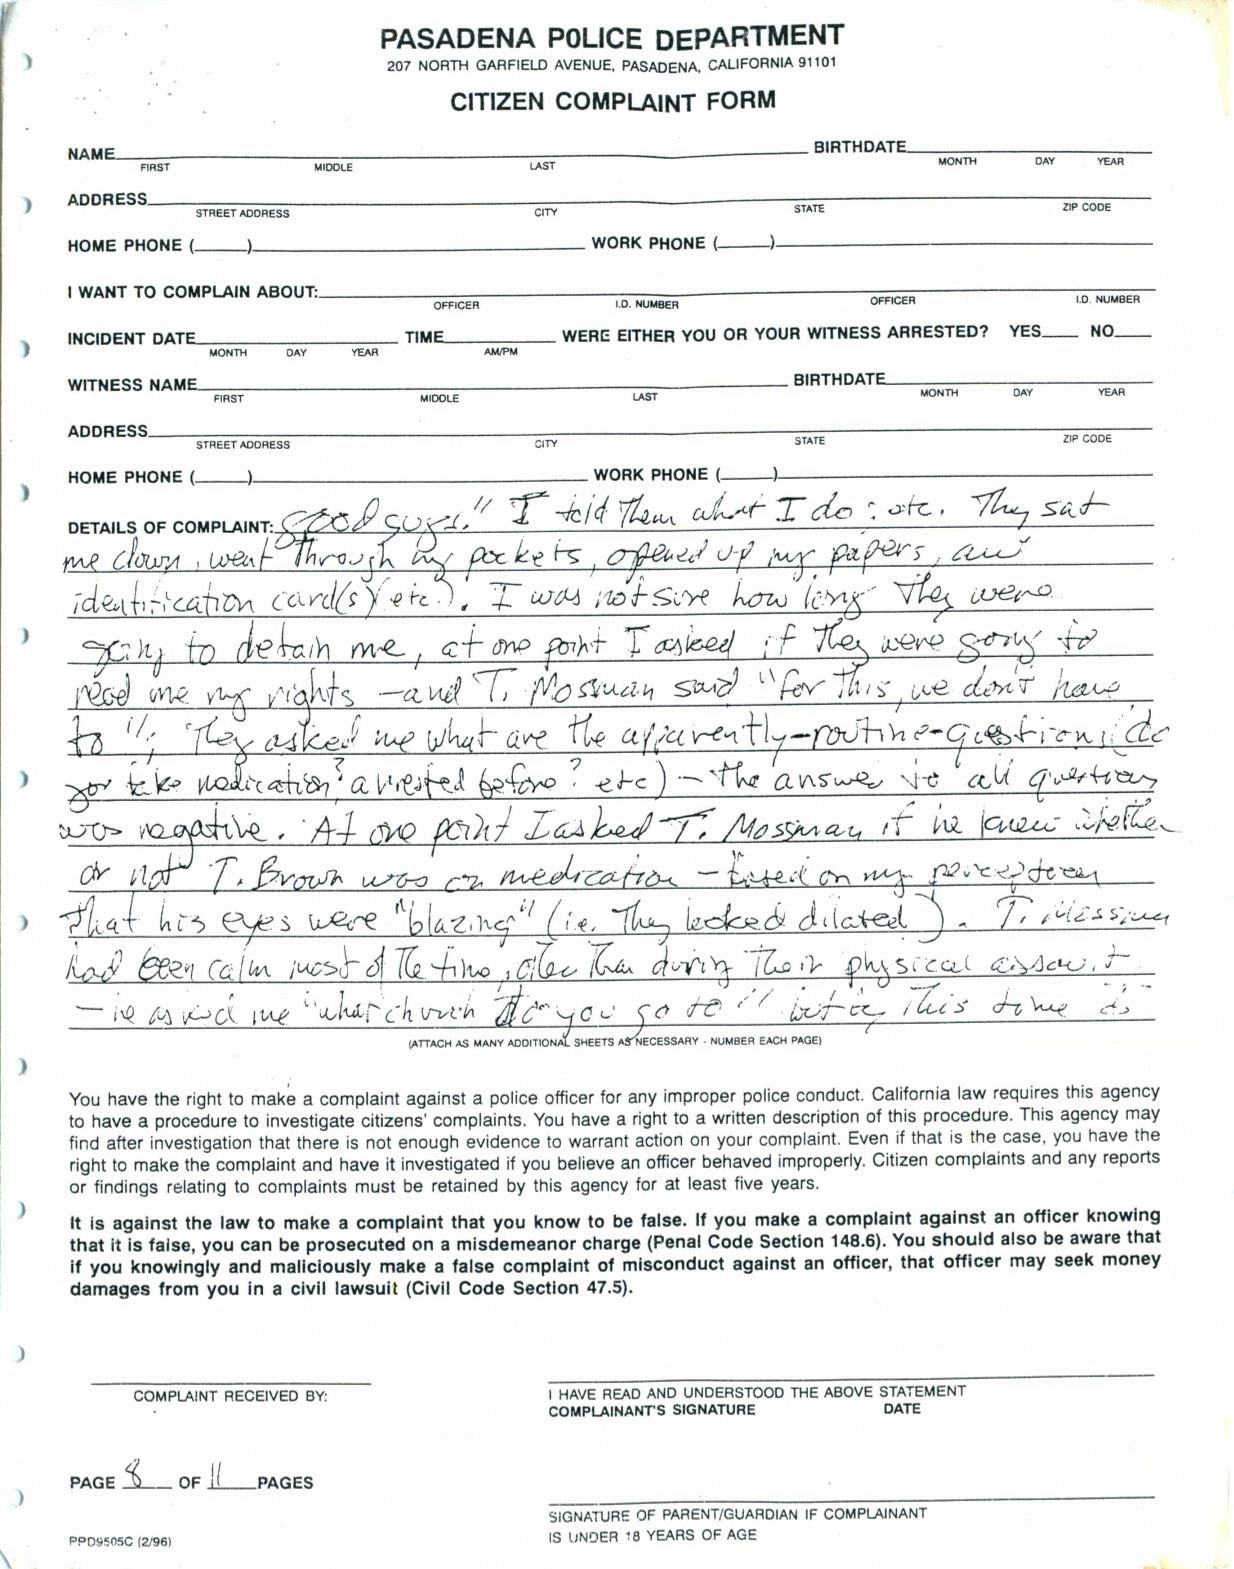 PASADENA POLICE DEPARTMENT
207 NORTH GARFIELD AVENUE, PASADENA, CALIFORNIA 91101
CITIZEN COMPLAINT FORM
NAME BIRTHDATE
FIRST MIDDLE LAST MONTH DAY YEAR
ADDRESS
STREET ADDRESS CITY STATE ZIP CODE
HOME PHONE ( ) WORK PHONE ( )
I WANT TO COMPLAIN ABOUT:
OFFICER I.D. NUMBER OFFICER I.D. NUMBER
INCIDENT DATE TIME WERE EITHER YOU OR YOUR WITNESS ARRESTED? YES NO
MONTH DAY YEAR AM/PM
WITNESS NAME BIRTHDATE
FIRST MIDDLE LAST MONTH DAY YEAR
ADDRESS
STREET ADDRESS CITY STATE ZIP CODE
HOME PHONE ( ) WORK PHONE ( )
DETAILS OF COMPLAINT: good guys." I told them what I do; etc. They sat
me down, went through my pockets, opened up my papers, and
identification card(s) etc.). I was not sure how long they were
going to detain me, at one point I asked if they were going to
read me my rights — and T. Mossman said "for this, we don't have
to"; They asked me what are the apparently-routine-questions (do
you take medication? arrested before? etc) — the answer to all questions
was negative. At one point I asked T. Mossman if he knew whether
or not T. Brown was on medication — based on my perception
that his eyes were "blazing" (i.e. They looked dilated). T. Mossman
had been calm most of the time, other than during their physical assault
— he asked me "what church do you go to" this time
(ATTACH AS MANY ADDITIONAL SHEETS AS NECESSARY - NUMBER EACH PAGE)
You have the right to make a complaint against a police officer for any improper police conduct. California law requires this agency
to have a procedure to investigate citizens' complaints. You have a right to a written description of this procedure. This agency may
find after investigation that there is not enough evidence to warrant action on your complaint. Even if that is the case, you have the
right to make the complaint and have it investigated if you believe an officer behaved improperly. Citizen complaints and any reports
or findings relating to complaints must be retained by this agency for at least five years.
It is against the law to make a complaint that you know to be false. If you make a complaint against an officer knowing
that it is false, you can be prosecuted on a misdemeanor charge (Penal Code Section 148.6). You should also be aware that
if you knowingly and maliciously make a false complaint of misconduct against an officer, that officer may seek money
damages from you in a civil lawsuit (Civil Code Section 47.5).
COMPLAINT RECEIVED BY: I HAVE READ AND UNDERSTOOD THE ABOVE STATEMENT
COMPLAINANT'S SIGNATURE DATE
PAGE 8 OF 11 PAGES
SIGNATURE OF PARENT/GUARDIAN IF COMPLAINANT
IS UNDER 18 YEARS OF AGE
PPD9505C (2/96)